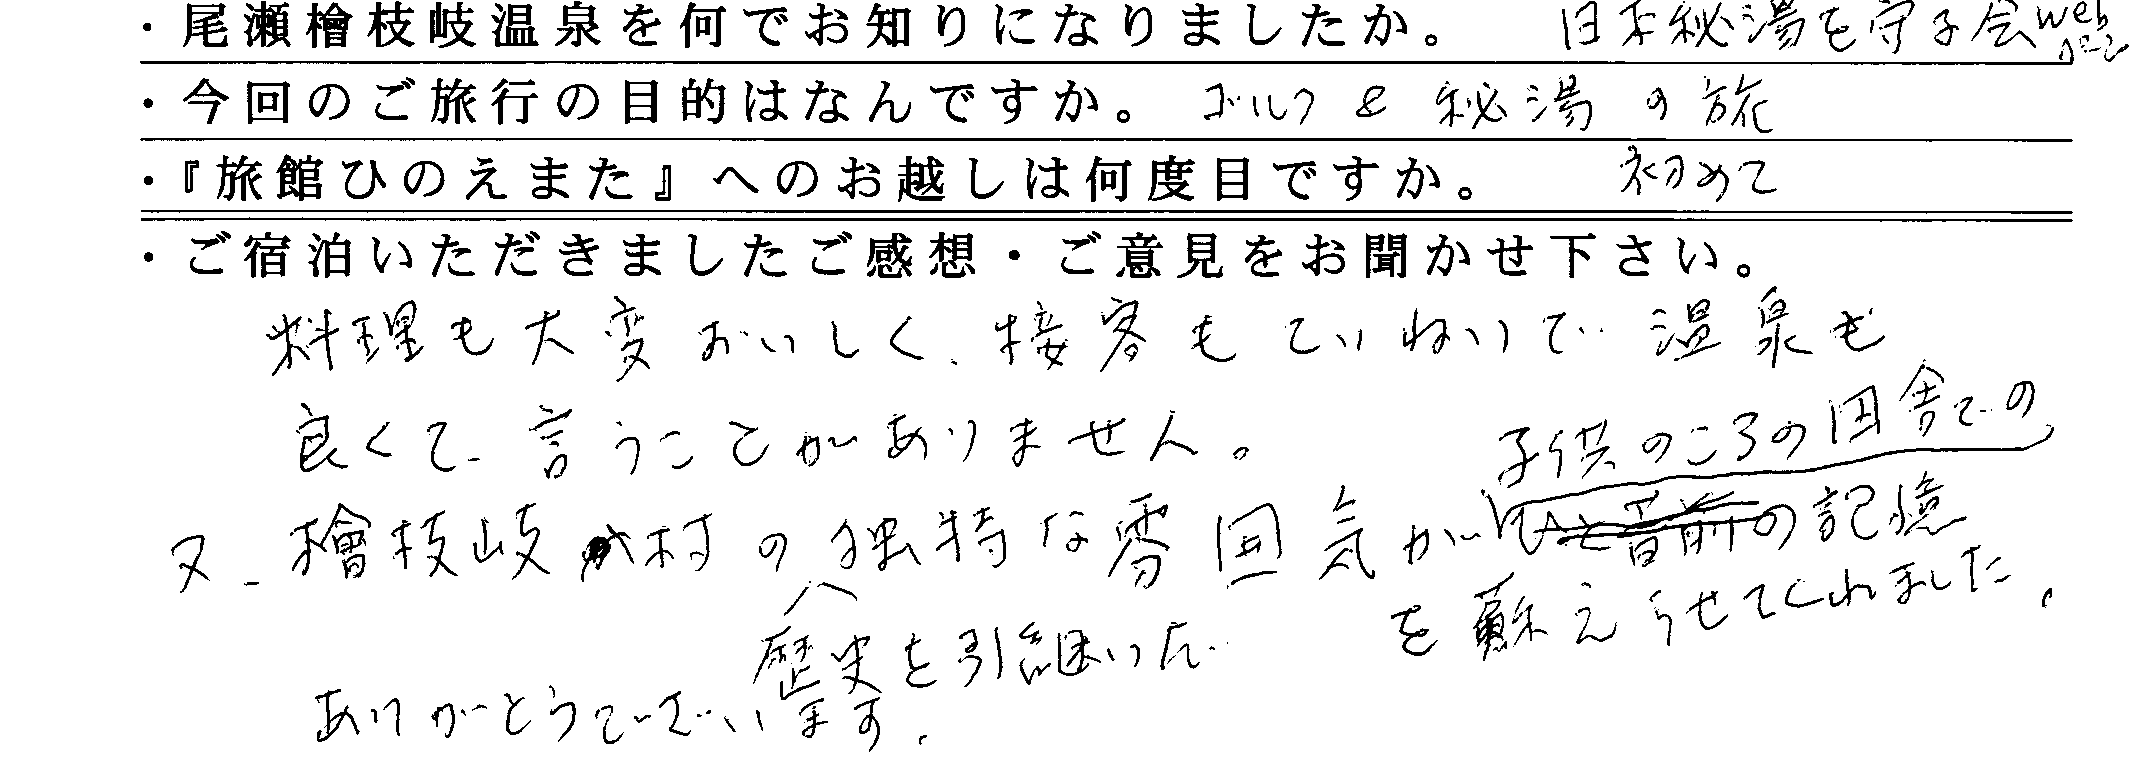 ・尾瀬檜枝岐温泉を何でお知りになりましたか。 日本秘湯を守る会web
・今回のご旅行の目的はなんですか。 ゴルフ & 秘湯の旅
・『旅館ひのえまた』へのお越しは何度目ですか。 初めて
・ご宿泊いただきましたご感想・ご意見をお聞かせ下さい。
料理も大変おいしく、接客もていねいで温泉も
良くて、言うことがありません。
子供のころの田舎での
又、檜枝岐村の独特な雰囲気がの記憶
を蘇えらせてくれました。
歴史を引継いだ
ありがとうございます。